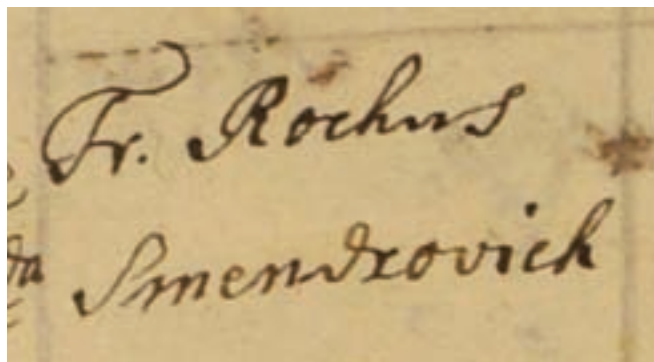 Fr. Rochus
da Smendrovich